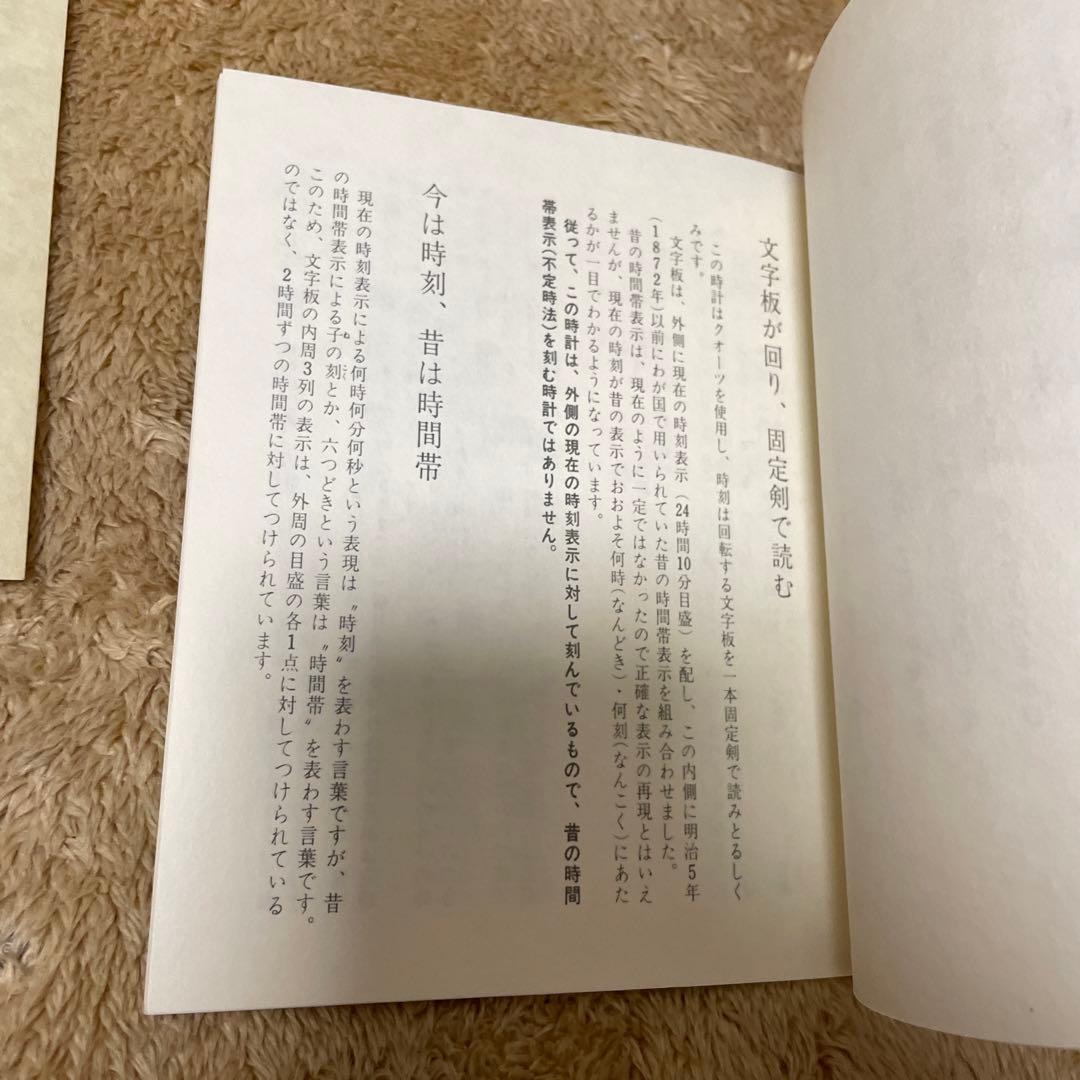 文字板が回り、固定剣で読む
この時計はクオーツを使用し、時刻は回転する文字板を一本固定剣で読みとるしく
みです。
文字板は、外側に現在の時刻表示(24時間10分目盛)を配し、この内側に明治5年
(1872年)以前にわが国で用いられていた昔の時間帯表示を組み合わせました。
昔の時間帯表示は、現在のように一定ではなかったので正確な表示の再現とはいえ
ませんが、現在の時刻が昔の表示でおおよそ何時(なんどき)・何刻(なんこく)にあた
るかが一目でわかるようになっています。
従って、この時計は、外側の現在の時刻表示に対して刻んでいるもので、昔の時間
帯表示(不定時法)を刻む時計ではありません。
今は時刻、昔は時間帯
現在の時刻表示による何時何分何秒という表現は〝時刻〟を表わす言葉ですが、昔
の時間帯表示による子の刻とか、六つどきという言葉は〝時間帯〟を表わす言葉です。
このため、文字板の内周3列の表示は、外周の目盛の各1点に対してつけられている
のではなく、2時間ずつの時間帯に対してつけられています。